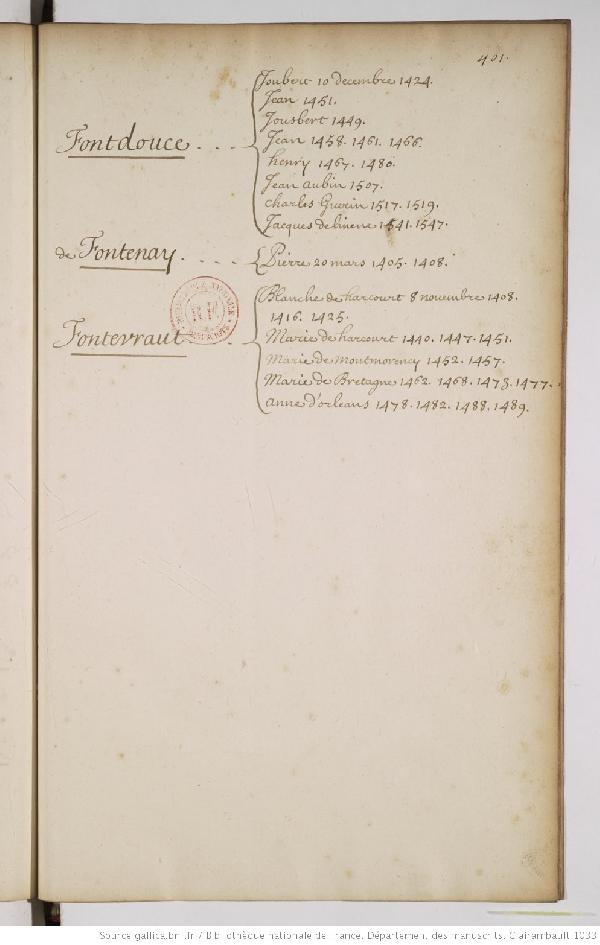 401.
Fontdouce
Joubert 10 decembre 1424.
Jean 1451.
Jousbert 1449.
Jean 1458. 1461. 1466.
henry 1467. 1480.
Jean aubin 1507.
Charles Guerin 1517. 1519.
Jacques 1541. 1547.
de Fontenay
Pierre 20 mars 1405. 1408.
Fontevraut
Blanche de harcourt 8 novembre 1408.
1416. 1425.
Marie de harcourt 1440. 1447. 1451.
Marie de Montmorency 1452. 1457.
Marie de Bretagne 1462. 1468. 1473. 1477.
anne d'orleans 1478. 1482. 1488. 1489.
Source gallica.bnf.fr / Bibliothèque nationale de France. Département des manuscrits. Clairambault 1033